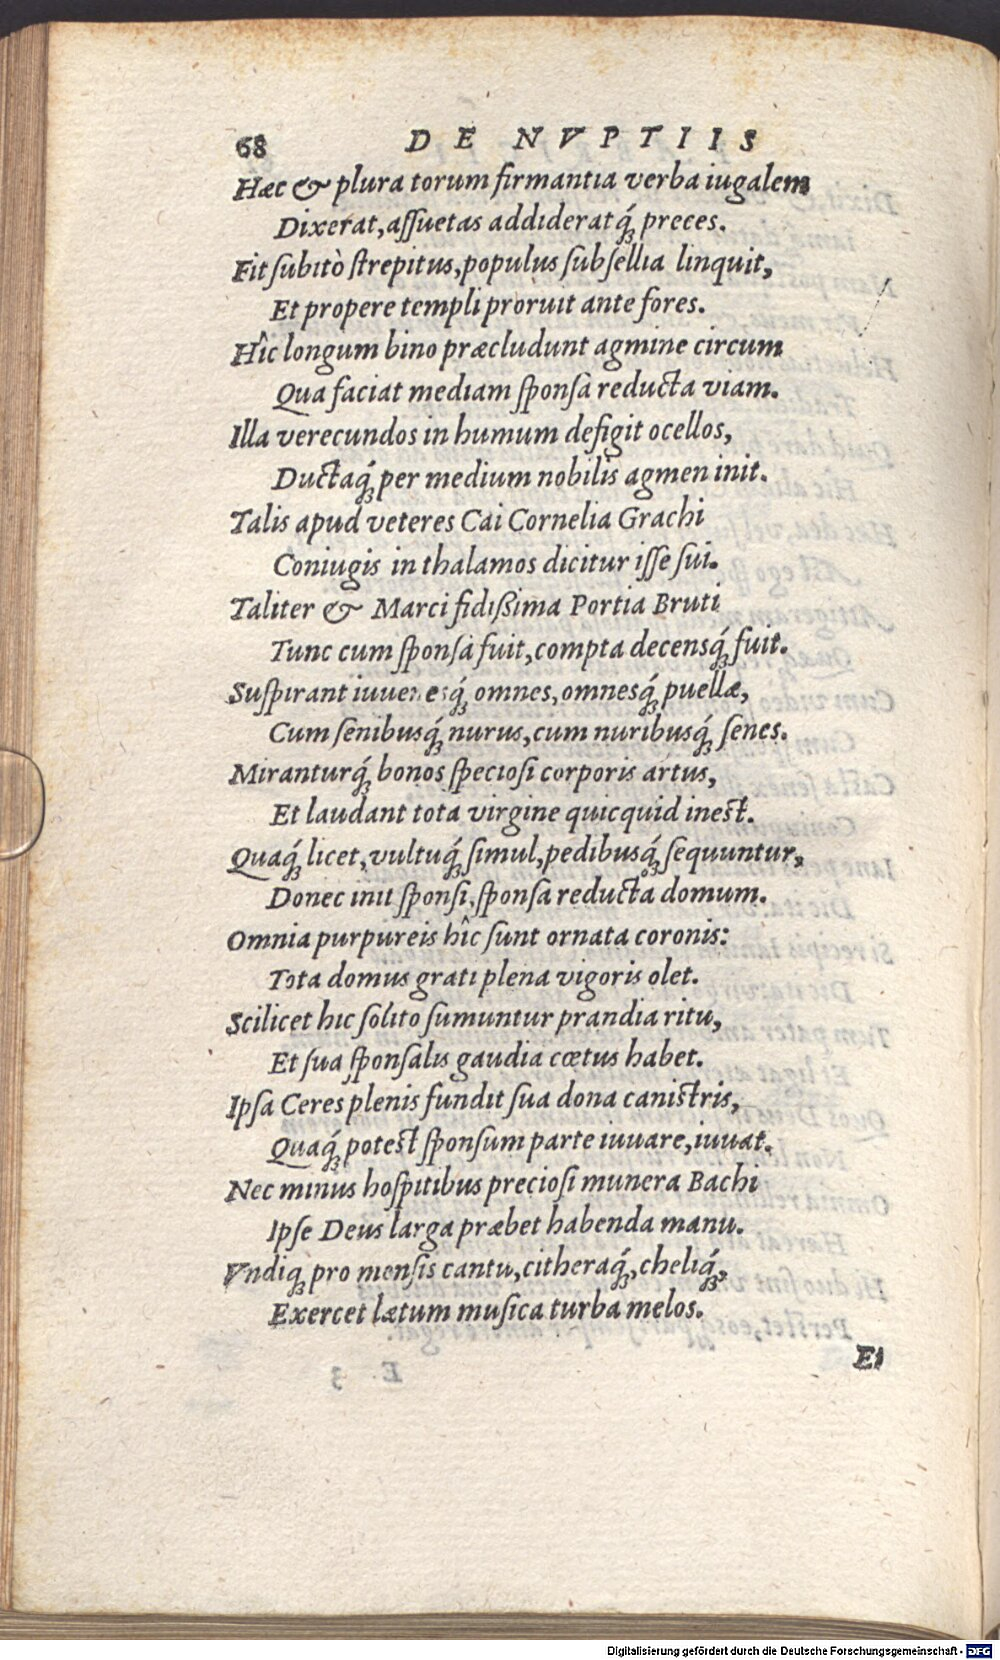 68 DE NVPTIIS
Hæc & plura torum firmantia verba iugalem
Dixerat, aſſuetas addideratq́; preces.
Fit ſubitò ſtrepitus, populus ſubſellia linquit,
Et propere templi proruit ante fores.
Hîc longum bino præcludunt agmine circum
Qua faciat mediam ſponſa reducta viam.
Illa verecundos in humum defigit ocellos,
Ductaq́; per medium nobilis agmen init.
Talis apud veteres Cai Cornelia Grachi
Coniugis in thalamos dicitur iſſe ſui.
Taliter & Marci fidißima Portia Bruti
Tunc cum ſponſa fuit, compta decensq́; fuit.
Suſpirant iuuenesq́; omnes, omnesq́; puellæ,
Cum ſenibusq́; nurus, cum nuribusq́; ſenes.
Miranturq́; bonos ſpecioſi corporis artus,
Et laudant tota virgine quicquid ineſt.
Quaq́; licet, vultuq́; ſimul, pedibusq́; ſequuntur,
Donec init ſponſi, ſponſa reducta domum.
Omnia purpureis hîc ſunt ornata coronis:
Tota domus grati plena vigoris olet.
Scilicet hic ſolito ſumuntur prandia ritu,
Et ſua ſponſalis gaudia cœtus habet.
Ipſa Ceres plenis fundit ſua dona caniſtris,
Quaq́; poteſt ſponſum parte iuuare, iuuat.
Nec minus hoſpitibus precioſi munera Bachi
Ipſe Deus larga præbet habenda manu.
Vndiq; pro menſis cantu, citheraq́;, cheliq́;,
Exercet lætum muſica turba melos.
Et
Digitalisierung gefördert durch die Deutsche Forschungsgemeinschaft - DFG